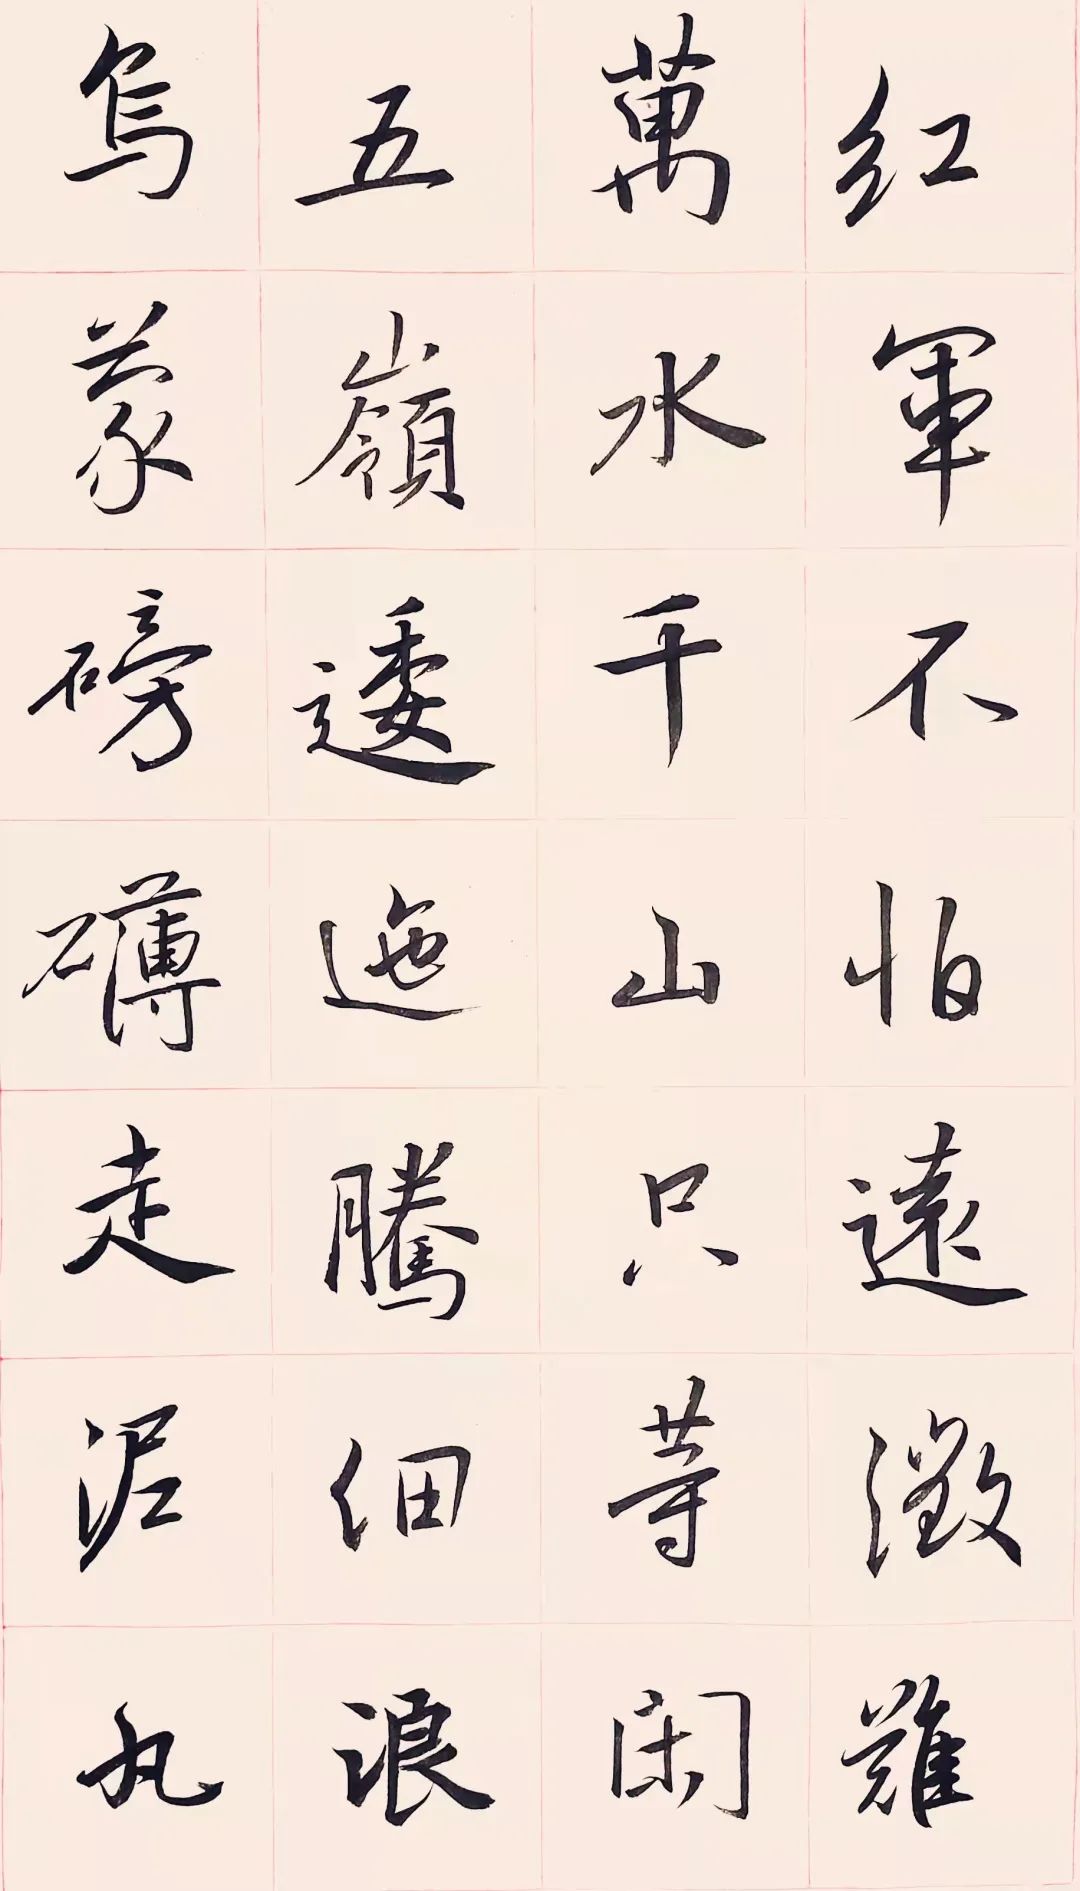 红軍不怕遠徵難
萬水千山只等閑
五嶺逶迤騰細浪
烏蒙磅礴走泥丸